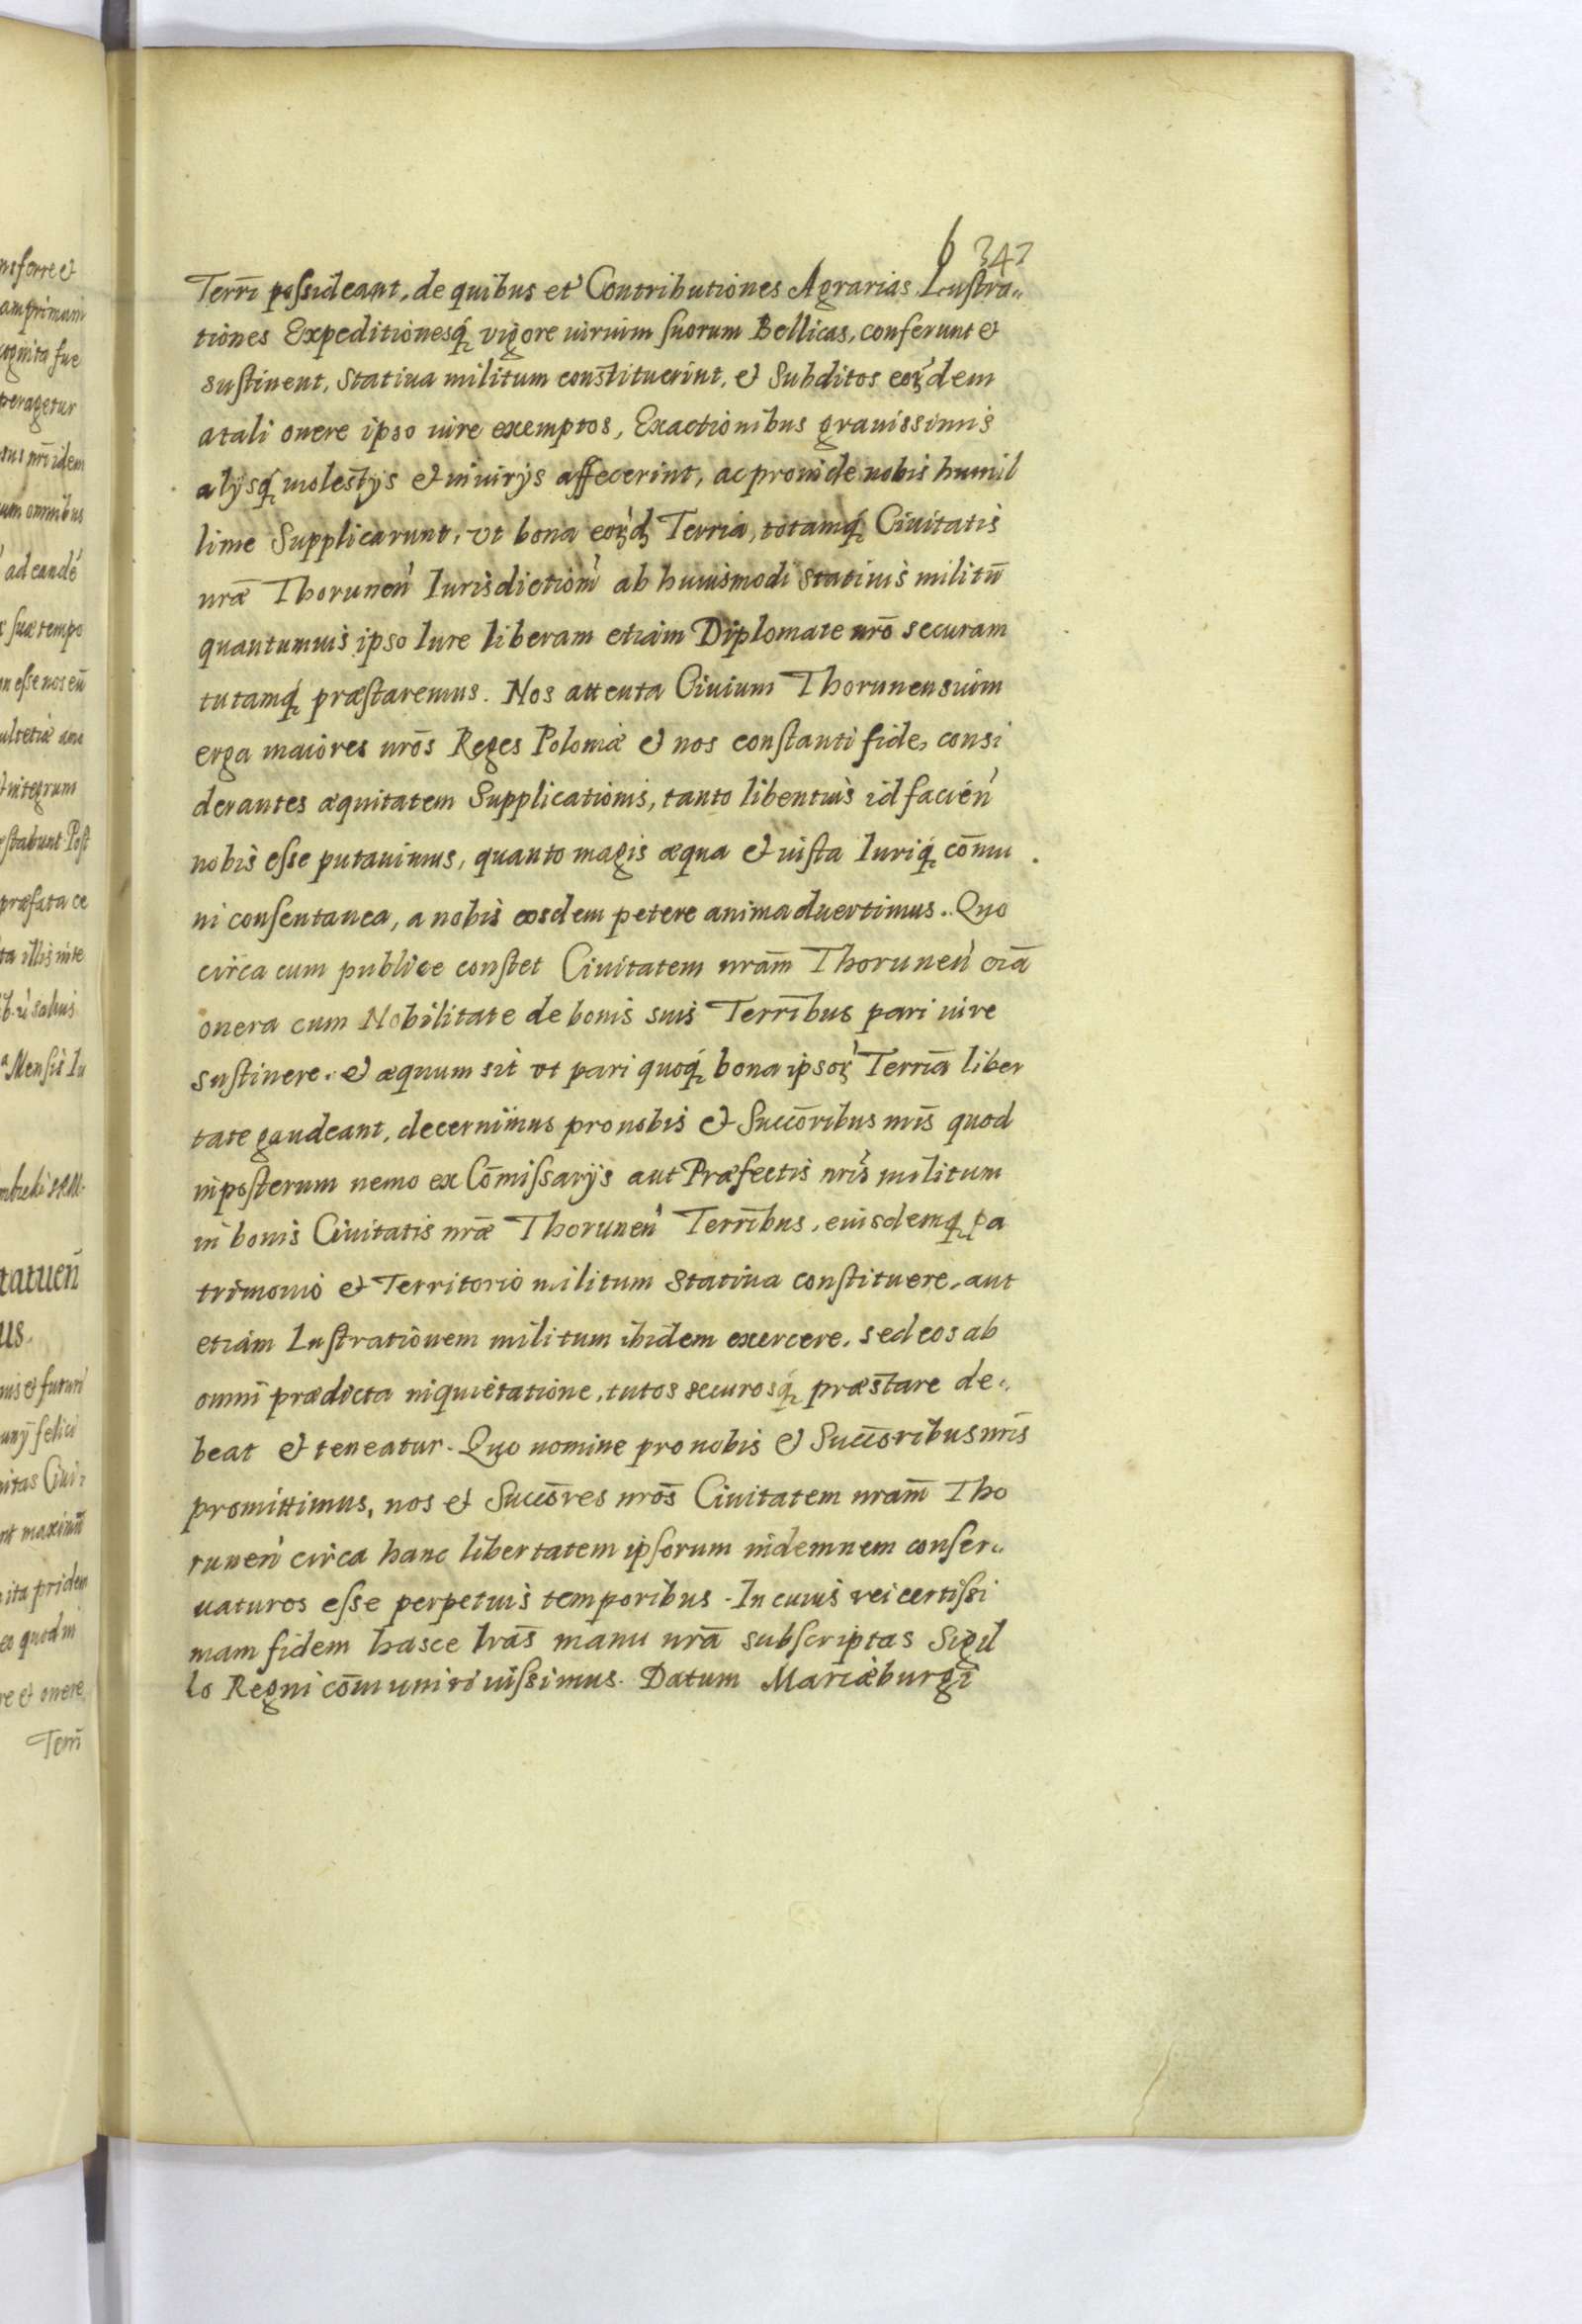 6 347
Terrī possideant, de quibus et Contributiones Agrarias Lustra„
tiones Expeditionesq́ȝ vigore iurium suorum Bellicas, conferunt et
sustinent, Statiua militum constituerint, et Subditos eorꝫdem
a tali onere ipso iure exemptos, Exactionibus grauissimis
alijsq́ȝ molestijs et iniurijs affecerint, ac proinde nobis humil
lime Supplicarunt, vt bona eorꝫdꝫ Terria, totamq́ȝ Ciuitatis
nrǣ Thorunen̄ Iurisdictiom̄ ab huiusmodi statiuis militū
quantumuis ipso Iure liberam etiam Diplomate nrō securam
tutamq́ȝ præstaremus. Nos attenta Ciuium Thorunensium
erga maiores nrōs Reges Poloniæ et nos constanti fide, consi
derantes æquitatem Supplicationis, tanto libentius id facien̄
nobis esse putauimus, quanto magis æqua et iusta Iuriq́ȝ cōmu
ni consentanea, a nobis eosdem petere animaduertimus. Quo
circa cum publice constet Ciuitatem nram̄ Thorunen̄ oīa
onera cum Nobilitate de bonis suis Terrībus pari iure
sustinere, et æquum sit vt pari quoq́ȝ bona ipsorꝫ Terrīa liber
tate gaudeant, decernimus pro nobis et Succōribus nrīs quod
inposterum nemo ex Cōmissarijs aut Præfectis nrīs militum
in bonis Ciuitatis nrǣ Thorunen̄ Terrībus, eiusdemqȝ pa
trimonio et Territorio militum Statiua constituere, aut
etiam Lustrationem militum ibidem exercere, sed eos ab
omni prædicta inquietatione, tutos securosq́ȝ præstare de„
beat et teneatur. Quo nomine pro nobis et Succōribus nrīs
promittimus, nos et Succōres nrōs Ciuitatem nram̄ Tho
runen̄ circa hanc libertatem ipsorum indemnem conser„
uaturos esse perpetuis temporibus. In cuius rei certissi
mam fidem hasce lrās manu nrā subscriptas Sigil
lo Regni cōmuniri iussimus. Datum Mariæburgi